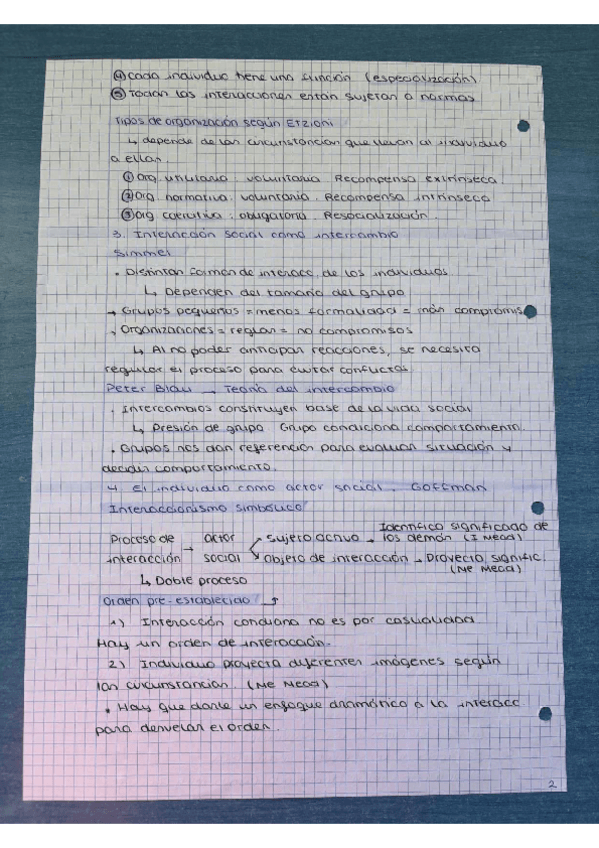 ④ cada individuo tiene una función (especialización)
⑤ Todas las interacciones están sujetas a normas
Tipos de organización según Etzioni
↳ depende de las circunstancias que llevan al individuo
a ellas.
① Org. utilitaria: voluntaria. Recompensa extrínseca.
② Org. normativa: voluntaria. Recompensa intrínseca
③ Org coercitiva: obligatoria. Resocialización.
3. Interacción social como intercambio
Simmel
• Distintas formas de interacc. de los individuos
↳ Dependen del tamaño del grupo
→ Grupos pequeños = menos formalidad = más compromis
• Organizaciones = reglas = no compromisos
↳ Al no poder anticipar reacciones, se necesita
regular el proceso para evitar conflictos
Peter Blau → Teoría del intercambio
• Intercambios constituyen base de la vida social
↳ Presión de grupo. Grupo condiciona comportamiento.
• Grupos nos dan referencias para evaluar situación y
decidir comportamiento.
4. El individuo como actor social. Goffman
Interaccionismo simbólico
Identifica significado de
Proceso de actor Sujeto activo → los demás (I Mead)
interacción → social Objeto de interacción → Proyecta signific.
(Me Mead)
↳ Doble proceso
Orden pre-establecido
1) Interacción cotidiana no es por casualidad
Hay un orden de interacción.
2) Individuo proyecta diferentes imágenes según
las circunstancias. (Me Mead)
• Hay que darle un enfoque dramático a la interacc
para desvelar el orden.
2